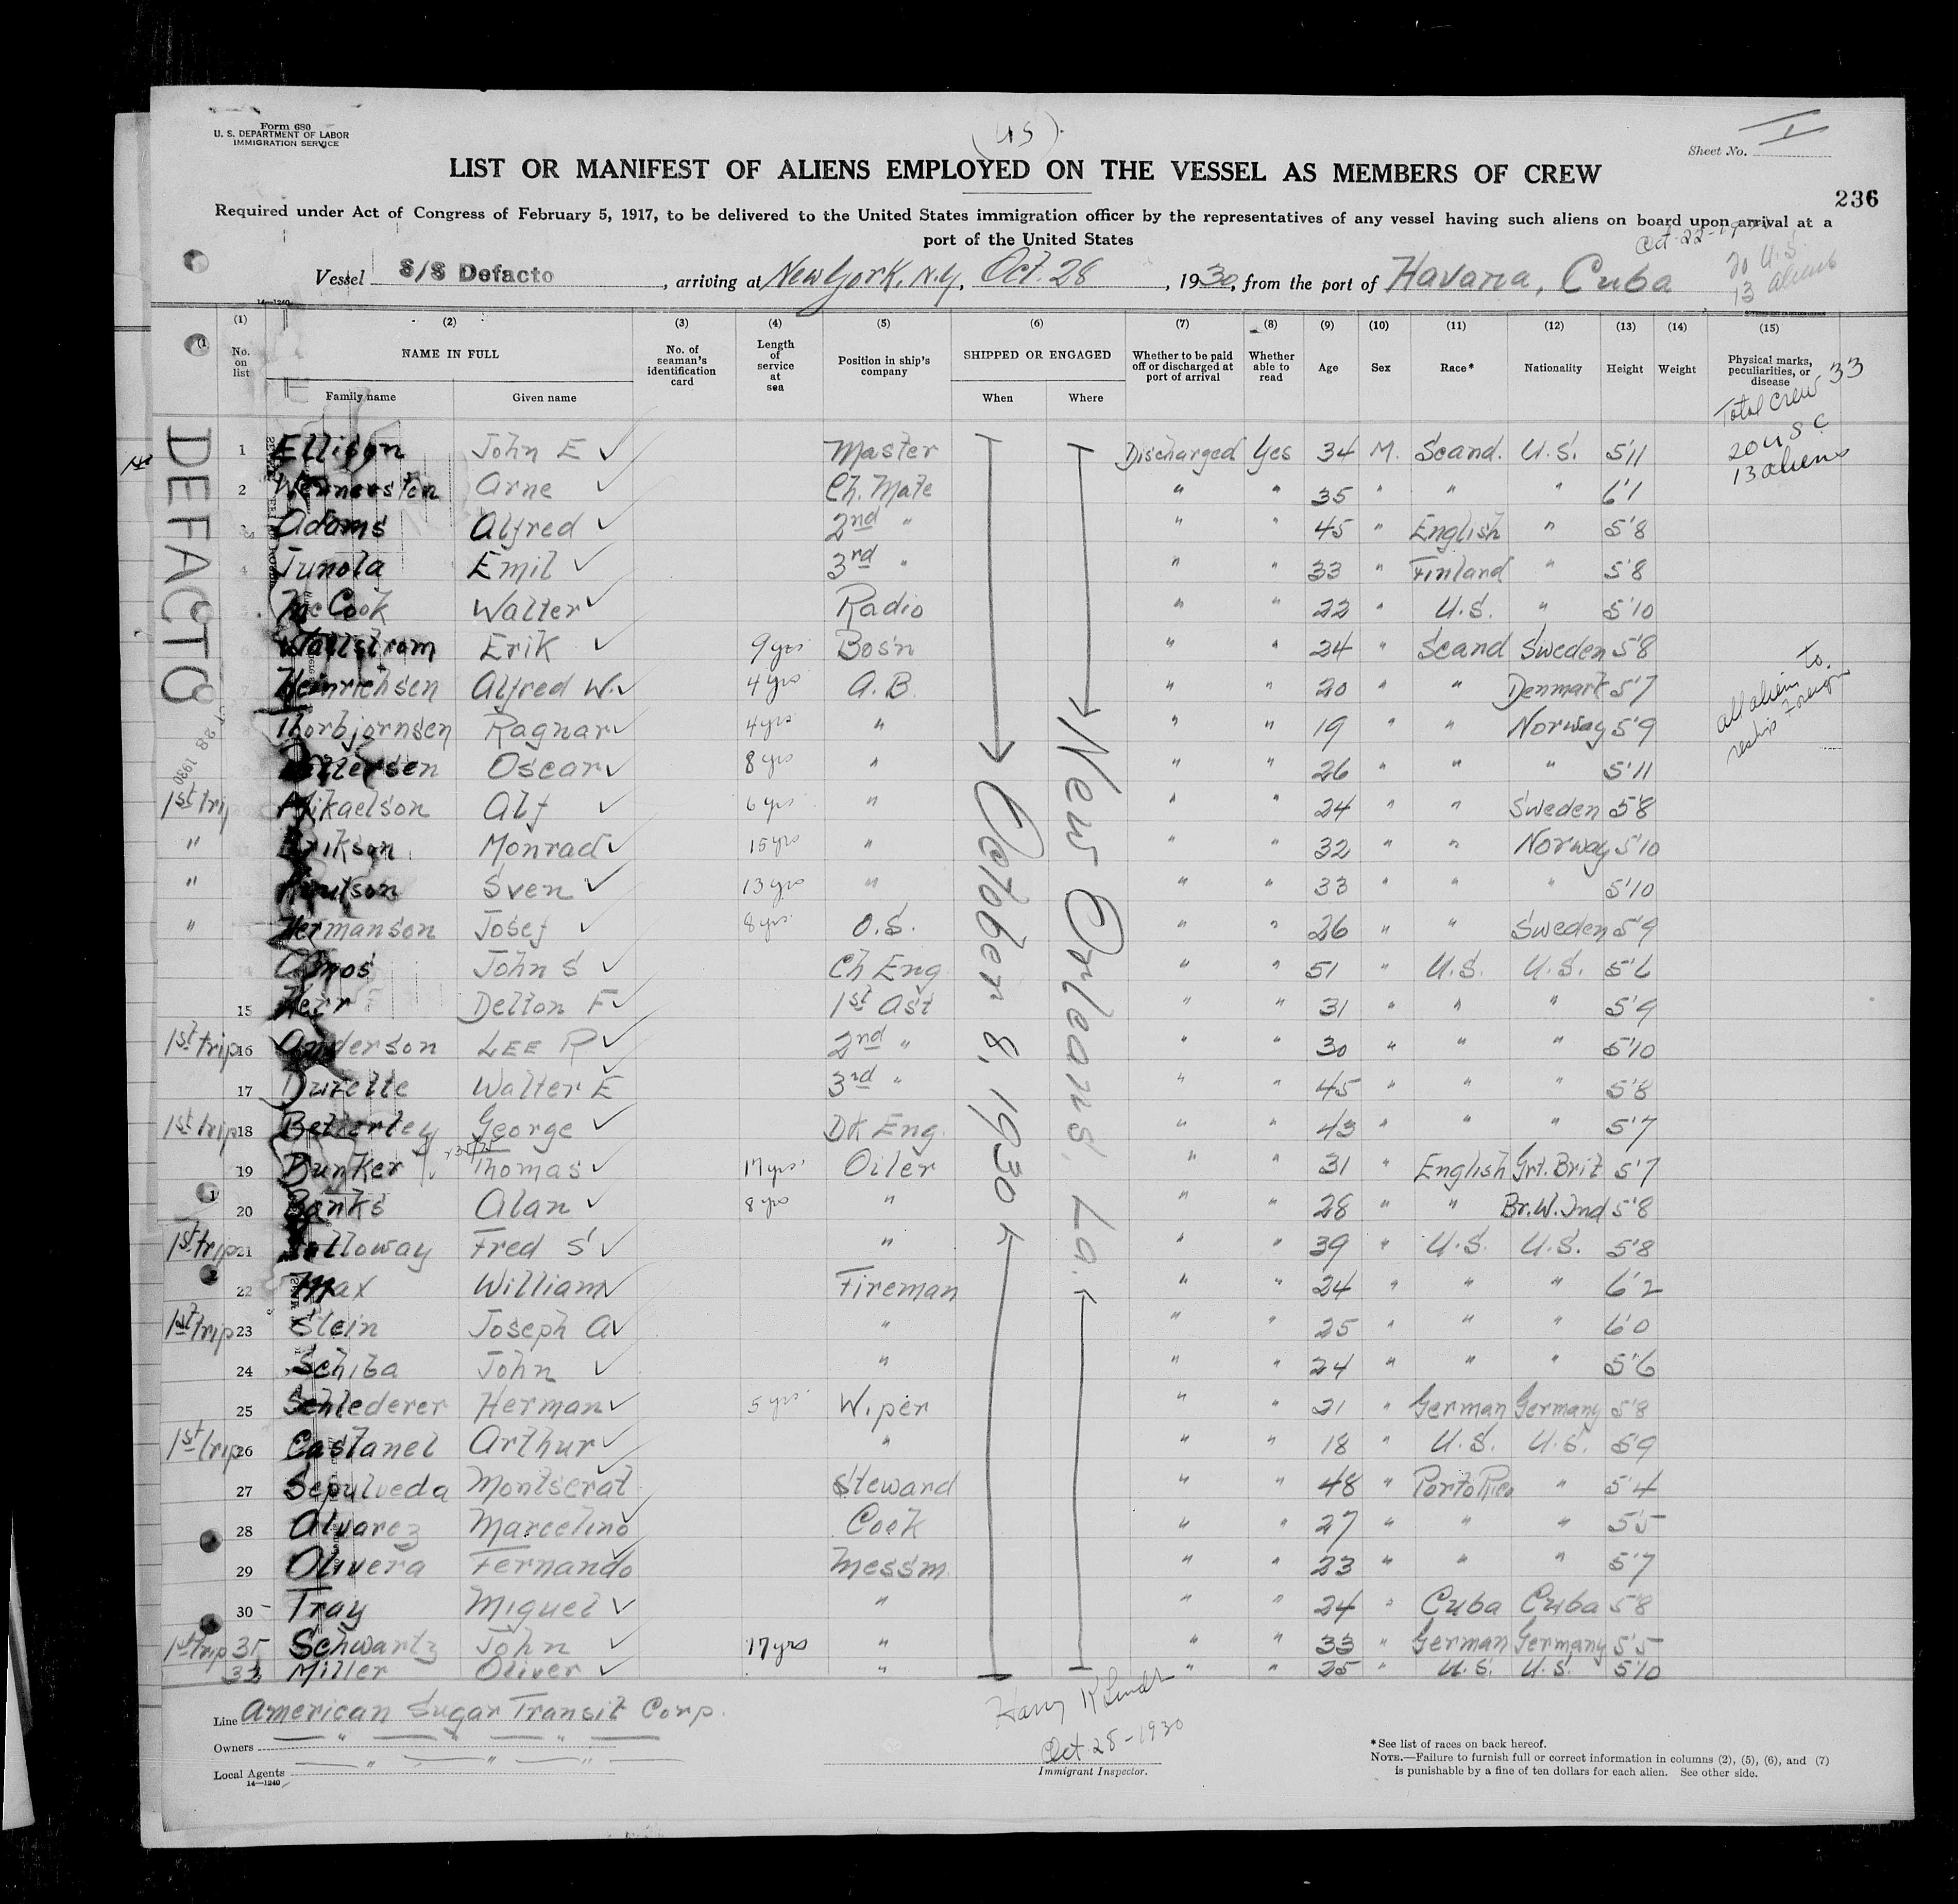 Form 680
U. S. DEPARTMENT OF LABOR
IMMIGRATION SERVICE
(US).
Sheet No. I
LIST OR MANIFEST OF ALIENS EMPLOYED ON THE VESSEL AS MEMBERS OF CREW
236
Required under Act of Congress of February 5, 1917, to be delivered to the United States immigration officer by the representatives of any vessel having such aliens on board upon arrival at a
port of the United States
Oct. 22-19
Vessel S/S Defacto, arriving at New York, N.Y., Oct. 28, 1930, from the port of Havana, Cuba
20 U.S.
13 aliens
14—1240
(1) (2) (3) (4) (5) (6) (7) (8) (9) (10) (11) (12) (13) (14) (15)
No. on list NAME IN FULL No. of seaman's identification card Length of service at sea Position in ship's company SHIPPED OR ENGAGED Whether to be paid off or discharged at port of arrival Whether able to read Age Sex Race* Nationality Height Weight Physical marks, peculiarities, or disease
Family name Given name When Where
Total Crew 33
20 U S C
13 aliens
DEFACTO
October 8, 1930
New Orleans, La.
1 Ellison John E ✓ Master Discharged Yes 34 M. Scand. U.S. 5'11
2 Arne ✓ Ch. Mate " " 35 " " " 6'1
3 Adams Alfred ✓ 2nd " " " 45 " English " 5'8
4 Junola Emil ✓ 3rd " " " 33 " Finland " 5'8
5 McCook Walter ✓ Radio " " 22 " U.S. " 5'10
6 Wallstrom Erik ✓ 9yrs Bosn " " 24 " Scand Sweden 5'8
7 Heinrichsen Alfred W. ✓ 4yrs A.B. " " 20 " " Denmark 5'7
all aliens to
reship foreign
8 Thorbjornsen Ragnar ✓ 4yrs " " " 19 " " Norway 5'9
28 1930
9 Oscar ✓ 8yrs " " " 26 " " " 5'11
1st trip Mikaelson Alf ✓ 6yrs " " " 24 " " Sweden 5'8
" Erikson Monrad ✓ 15yrs " " " 32 " " Norway 5'10
" Sven ✓ 13yrs " " " 33 " " " 5'10
" Hermanson Josef ✓ 8yrs O.S. " " 26 " " Sweden 5'9
14 Amos John S ✓ Ch Eng " " 51 " U.S. U.S. 5'6
15 Herr Delton F ✓ 1st Ast " " 31 " " " 5'9
1st trip 16 Anderson LEE R ✓ 2nd " " " 30 " " " 5'10
17 Walter E 3rd " " " 45 " " " 5'8
1st trip 18 Betterley George ✓ DK Eng. " " 43 " " " 5'7
19 Bunker Thomas ✓ 17yrs Oiler " " 31 " English Grt. Brit 5'7
20 Banks Alan ✓ 8yrs " " " 28 " " Br.W.Ind 5'8
1st trip 21 Fred S ✓ " " " 39 " U.S. U.S. 5'8
22 Max William ✓ Fireman " " 24 " " " 6'2
1st trip 23 Stein Joseph A ✓ " " " 25 " " " 6'0
24 Schiba John ✓ " " " 24 " " " 5'6
25 Schlederer Herman ✓ 5yrs Wiper " " 21 " German Germany 5'8
1st trip 26 Castanel Arthur ✓ " " " 18 " U.S. U.S. 5'9
27 Sepulveda Montserat Steward " " 48 " Porto Rico " 5'4
28 Alvarez Marcelino Cook " " 27 " " " 5'5
29 Olivera Fernando Messm. " " 23 " " " 5'7
30 Tray Miguel ✓ " " " 24 " Cuba Cuba 5'8
1st trip Schwartz John ✓ 17yrs " " " 33 " German Germany 5'5
Miller Oliver ✓ " " " 25 " U.S. U.S. 5'10
Line American Sugar Transit Corp.
Owners " " "
Local Agents " " "
14—1240
Oct-28-1930
Immigrant Inspector.
*See list of races on back hereof.
NOTE.—Failure to furnish full or correct information in columns (2), (5), (6), and (7)
is punishable by a fine of ten dollars for each alien. See other side.